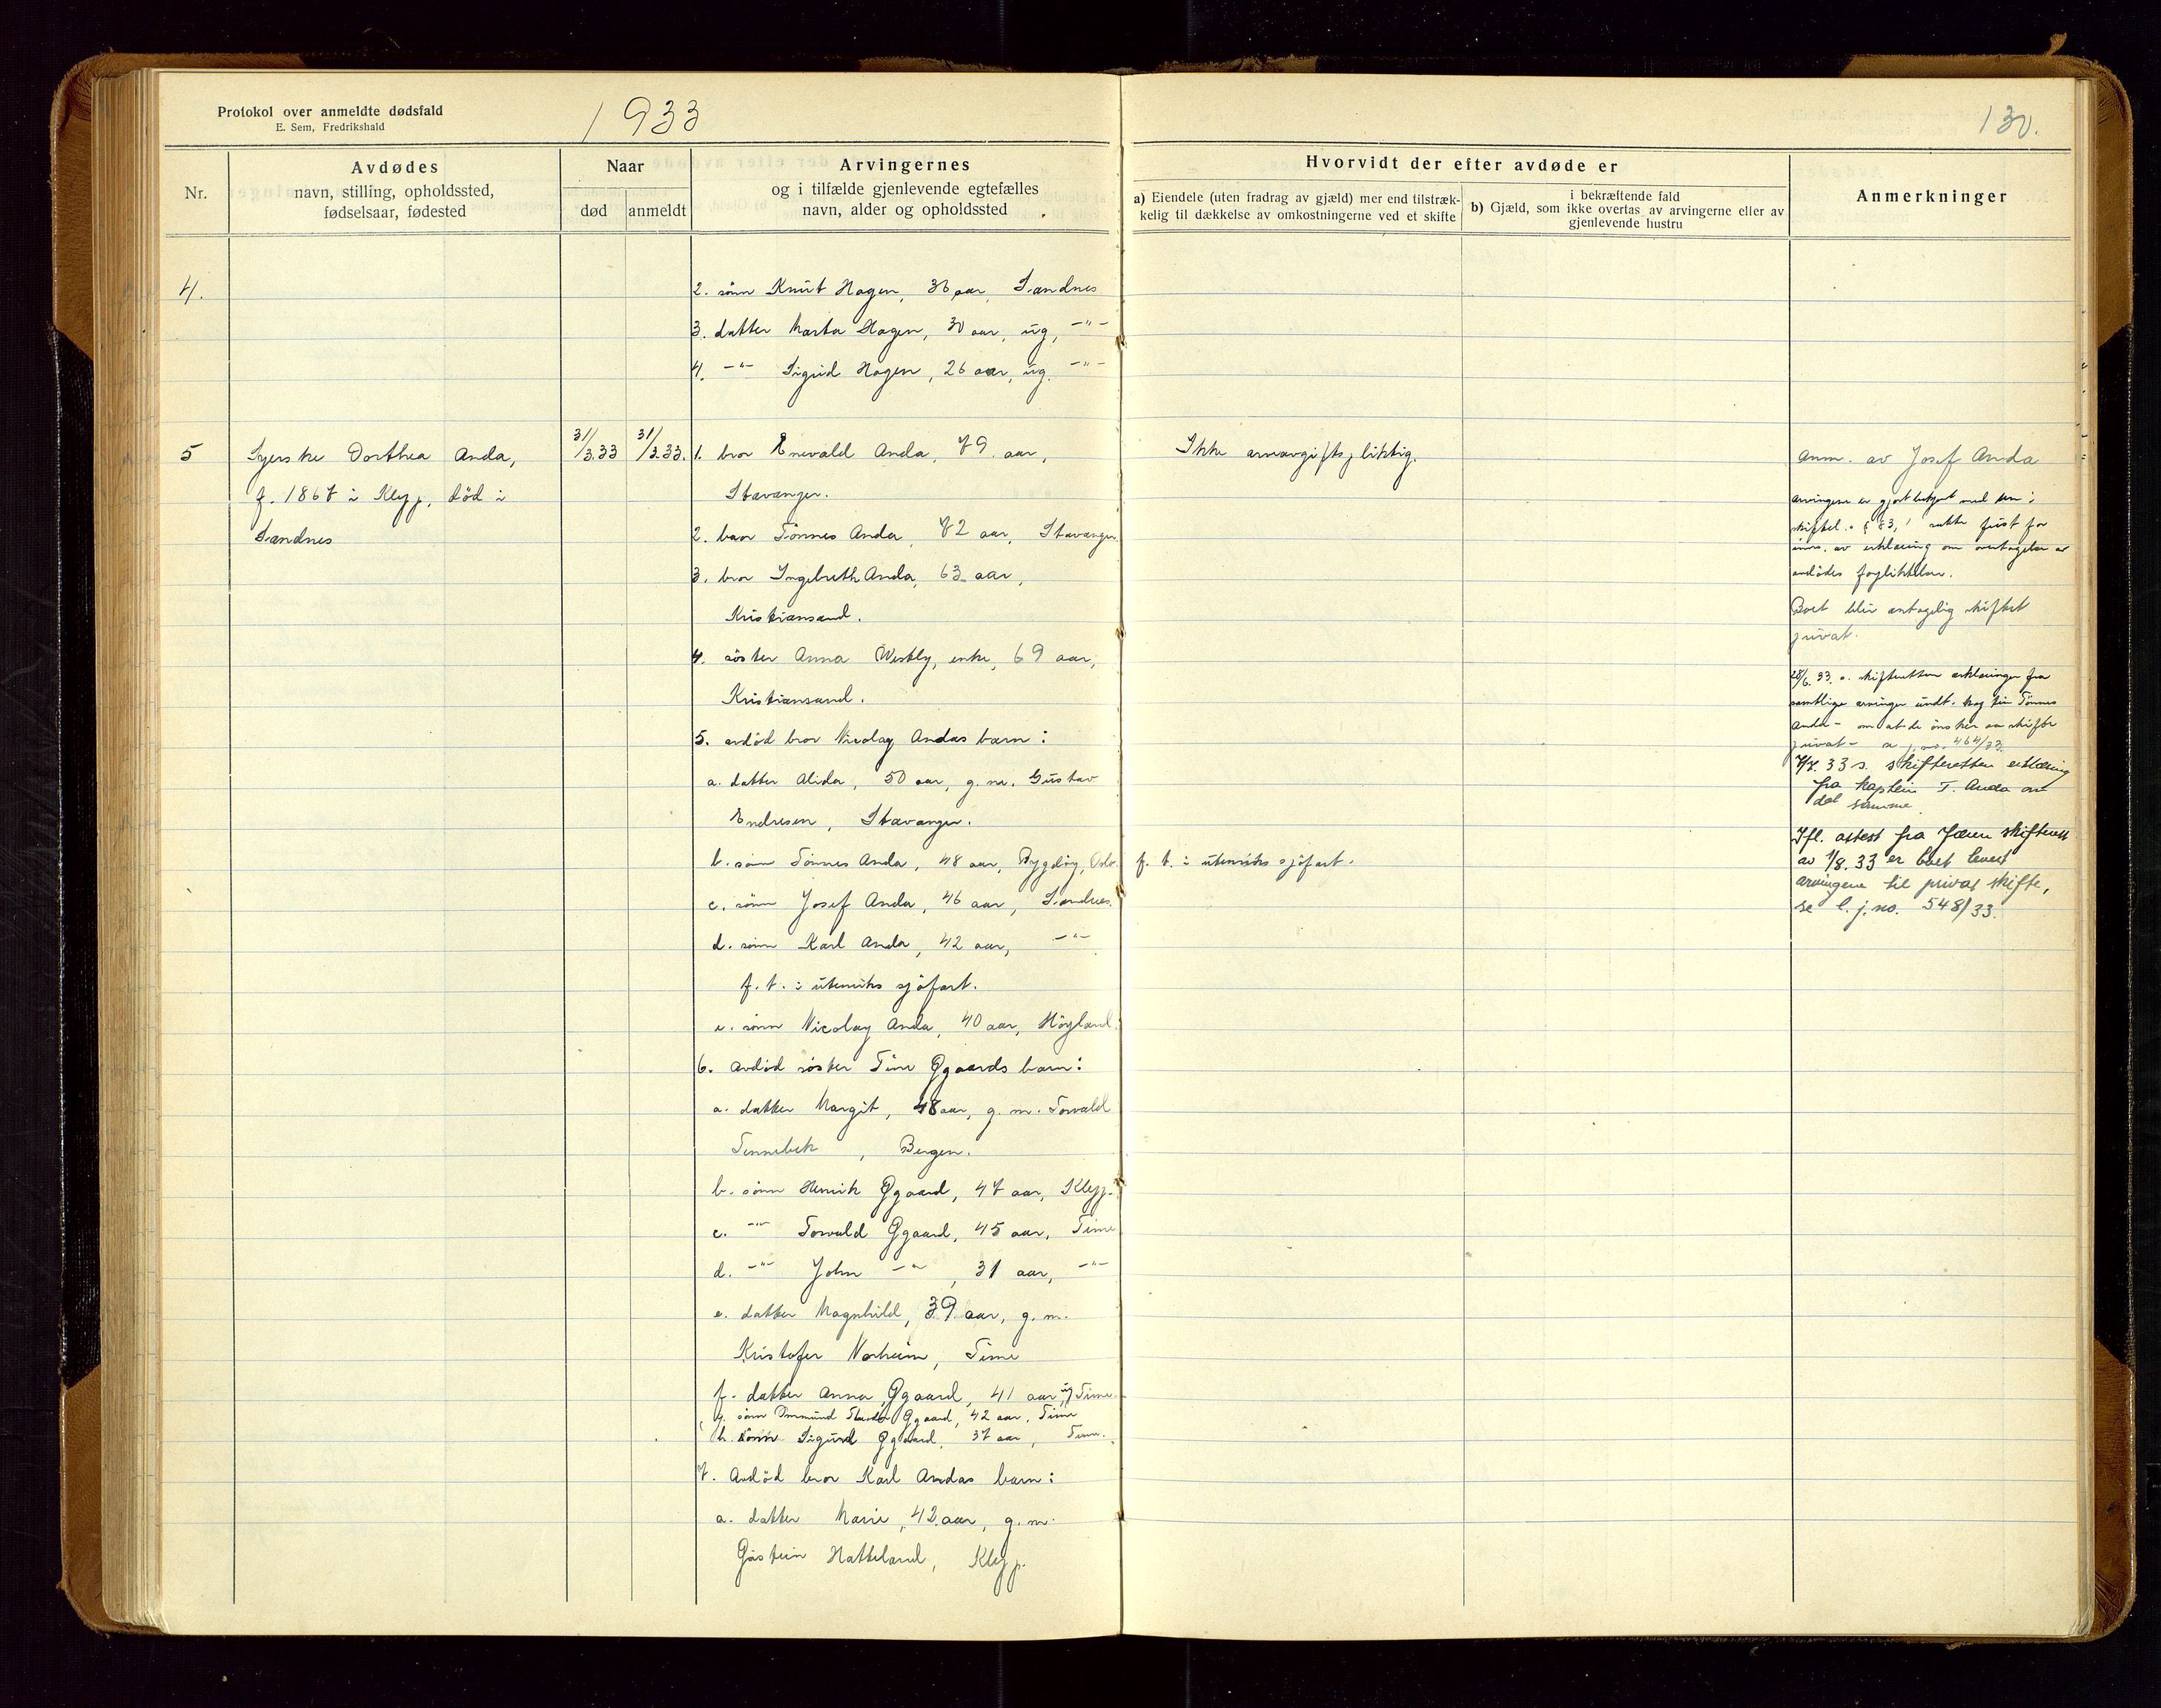 Protokol over anmeldte dødsfald
E. Sem, Fredrikshald
1933
130.
Nr.
Avdødes
navn, stilling, opholdssted,
fødselsaar, fødested
Naar
død
anmeldt
Arvingernes
og i tilfælde gjenlevende egtefælles
navn, alder og opholdssted
Hvorvidt der efter avdøde er
a) Eiendele (uten fradrag av gjæld) mer end tilstræk-
kelig til dækkelse av omkostningerne ved et skifte
i bekræftende fald
b) Gjæld, som ikke overtas av arvingerne eller av
gjenlevende hustru
Anmerkninger
4.
2. sønn Knut Hagen, 36 aar, Sandnes
3. datter Marta Hagen, 30 aar, ug, -"-
4. -"- Sigrid Hagen, 26 aar, ug. -"-
5
Syerske Dorthea Anda,
f. 1867 i Klepp, død i
Sandnes
31/3.33
31/3.33.
1. bror Enevald Anda, 79 aar,
Stavanger.
2. bror Tönnes Anda, 72 aar, Stavanger.
3. bror Ingebreth Anda, 63 aar,
Kristiansand.
4. söster Anna Westly, enke, 69 aar,
Kristiansand.
5. avdöd bror Nicolay Andas barn:
a. datter Alida, 50 aar, g. m. Gustav
Endresen, Stavanger.
b. sönn Tönnes Anda, 48 aar, Bygdöy, Oslo
f. t. i utenriks sjöfart.
c. sönn Josef Anda, 46 aar, Sandnes.
d. sönn Karl Anda, 42 aar, -"-
f. t. i utenriks sjöfart.
e. sönn Nicolay Anda, 40 aar, Höyland.
6. Avdöd söster Tine Øgaards barn:
a. datter Margit, 48 aar, g. m. Torvald
Tennebek, Bergen.
b. sönn Henrik Øgaard, 47 aar, Klepp.
c. -"- Torvald Øgaard, 45 aar, Time
d. -"- John -"-, 31 aar, -"-
e. datter Magnhild, 39 aar, g. m.
Kristofer Norheim, Time
f. datter Anna Øgaard, 41 aar, ug Time
g. sönn Øgaard, 42 aar, Time
h. sönn Sigurd Øgaard, 37 aar, Time.
7. Avdöd bror Karl Andas barn:
a. datter Marie, 42 aar, g. m.
Göstein Hatteland, Klepp.
Ikke arveavgiftspliktig.
Anm. av Josef Anda
arvingene er gjort bekjent med
skiftel. § 83, 1 satte frist for
inns. av erklæring om overtagelse av
avdödes forpliktelser.
Boet blir antagelig skiftet
privat.
28/6.33. s. skifteretten erklæringer fra
samtlige arvinger undt. kaptein Tönnes
Anda - om at de önsker aa skifte
privat - se j.no. 464/33.
7/7.33 s. skifteretten erklæring
fra kaptein T. Anda om
det samme.
Ifl. attest fra Jæren skifterett
av 1/8.33 er boet levert
arvingene til privat skifte,
se l. j.no. 548/33.